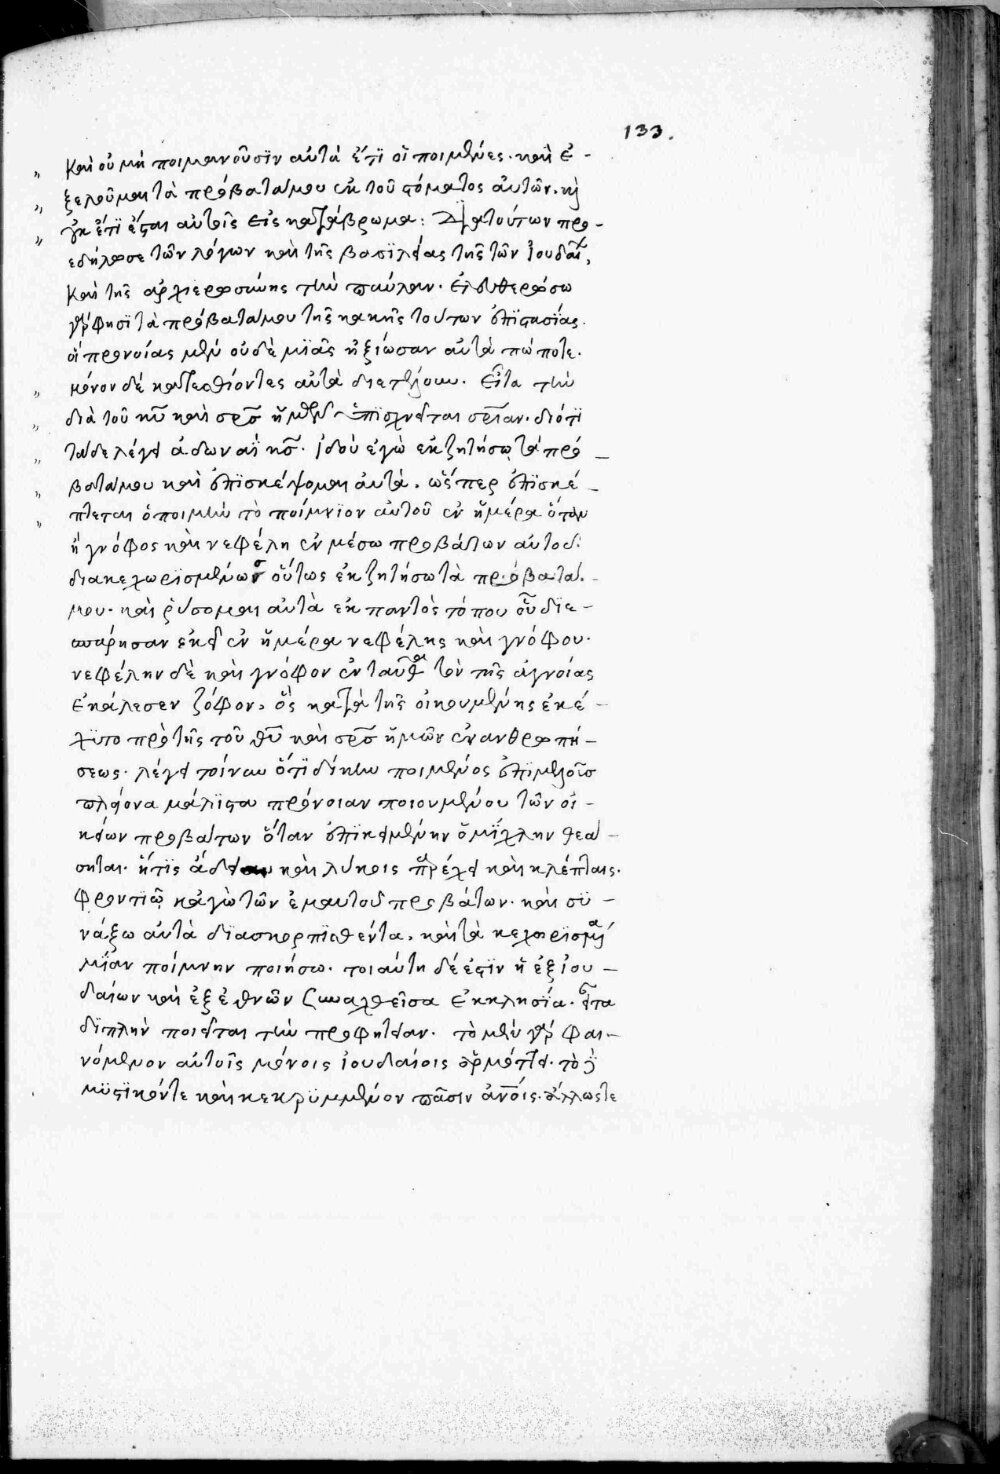 133.
καὶ οὐ μὴ ποιμανοῦσϊν αὐτὰ ἔτϊ οἱ ποιμένες. καὶ ἐ-
ξελοῦμαι τὰ πρόβατά μου ἐκ τοῦ στόματος αὐτῶν. κὶ
οὐκ ἔτϊ ἔσται αὐτοῖς εἰς κατάβρωμα: Διὰ τούτων προ-
εδήλωσε τῶν λόγων καὶ τῆς βασϊλείας τῆς τῶν ϊουδαί,
καὶ τῆς ἀρχιερωσύνης τὴν παῦλαν. ἐλευθερώσω
γάρ φησϊ τὰ πρόβατά μου τῆς κακῆς τούτων ἐπϊστασίας.
οἳ προνοίας μὲν οὐδὲ μϊᾶς ἠξίωσαν αὐτὰ πώποτε.
μόνον δὲ κατεσθίοντες αὐτὰ διετέλουν. Εἶτα τὴν
διὰ τοῦ κυ καὶ σρσ ἡμῶν ὑπϊσχνεῖται σρίαν. διότϊ
τάδε λέγει ἀδωναῒ κσ. ϊδοὺ ἐγὼ ἐκζητήσω τὰ πρό-
βατά μου καὶ ἐπϊσκέψομαι αὐτά. ὥσπερ ἐπϊσκέ-
πτεται ὁ ποιμὴν τὸ ποίμνϊον αὐτοῦ ἐν ἡμέρα ὅταν
ἦ γνόφος καὶ νεφέλη ἐν μέσω προβάτων αὐτοῦ
διακεχωρϊσμένων οὕτως ἐκζητήσω τὰ πρόβατά
μου. καὶ ῥύσομαι αὐτὰ ἐκ παντὸς τόπου οὗ δϊε-
σπάρησαν ἐκεῖ ἐν ἡμέρα νεφέλης καὶ γνόφου.
νεφέλην δὲ καὶ γνόφον ἐνταῦθα τὸν τῆς ἀγνοίας
ἐκάλεσεν ζόφον. ὃς κατὰ τῆς οἰκουμένης ἐκέ-
χϋτο πρὸ τῆς τοῦ θυ καὶ σρσ ἡμῶν ἐνανθρωπή-
σεως. λέγει τοίνυν ὅτϊ δίκην ποιμένος ἐπϊμελοῦσ
πλείονα μάλϊστα πρόνοιαν ποιουμένου τῶν οἰ-
κείων προβάτων ὅταν ἐπϊκειμένην ὀμίχλην θεά-
σηται. ἥτϊς ἄδειαν καὶ λύκοις παρέχει καὶ κλέπταις.
φροντϊῶ κἀγὼ τῶν ἐμαυτοῦ προβάτων. καὶ σϋ-
νάξω αὐτὰ δϊασκορπϊσθέντα. καὶ τὰ κεχωρϊσμένα
μίαν ποίμνην ποιήσω. τοιαύτη δέ ἐστϊν ἡ ἐξ ϊου-
δαίων καὶ ἐξ ἐθνῶν συναχθεῖσα ἐκκλησία. εἶτα
δϊπλὴν ποιεῖται τὴν προφητείαν. τὸ μὲν γάρ φαι-
νόμενον αὐτοῖς μόνοις ϊουδαίοις ἁρμόττει. τὸ δὲ
μϋστϊκόν τε καὶ κεκρϋμμένον πᾶσϊν ἀνοις. ἄλλως τε